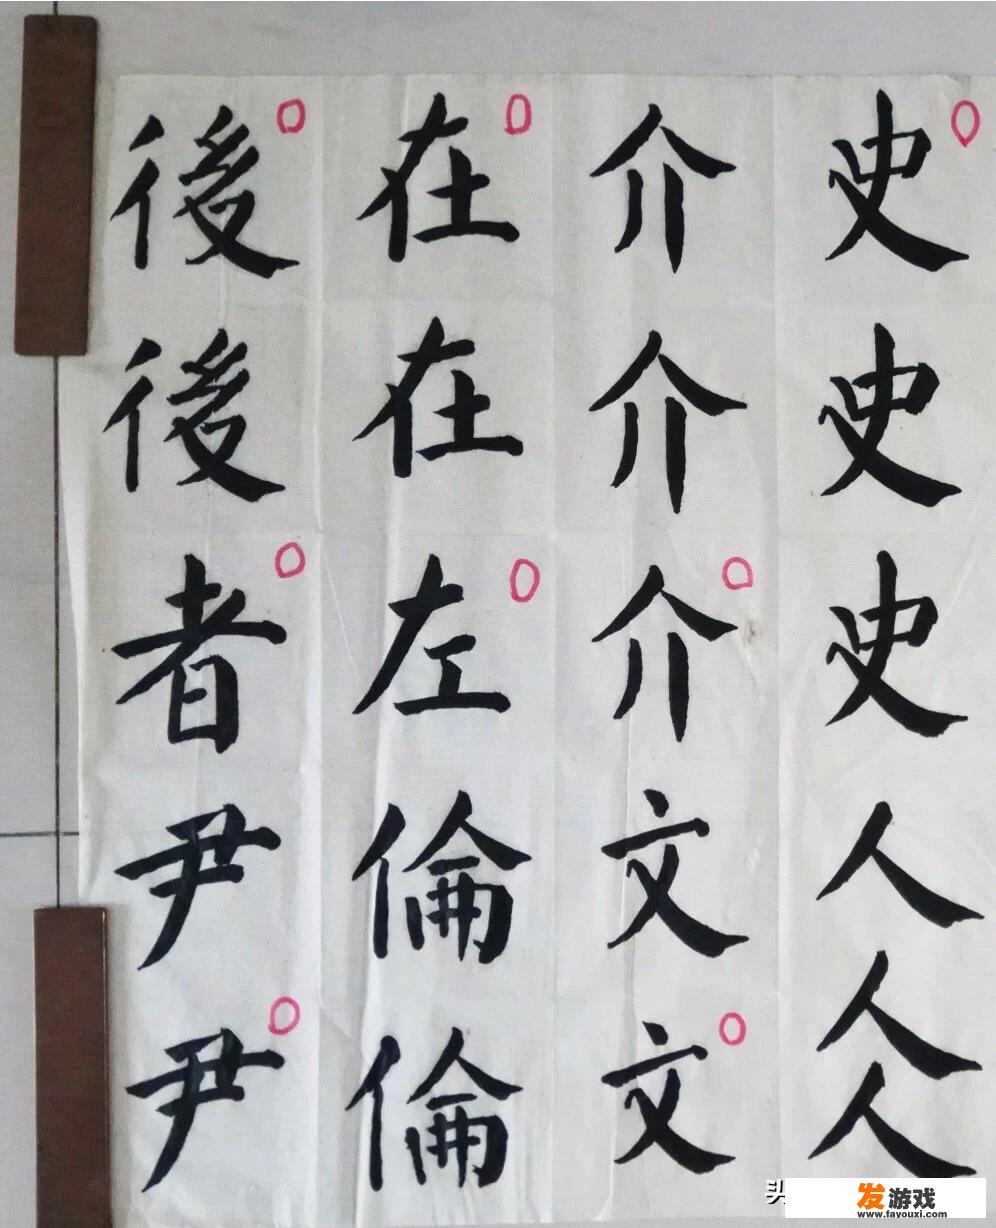 史史史人人人
介介介文文
在在左倫倫
後後者尹尹
发游戏
www.fayouxi.com